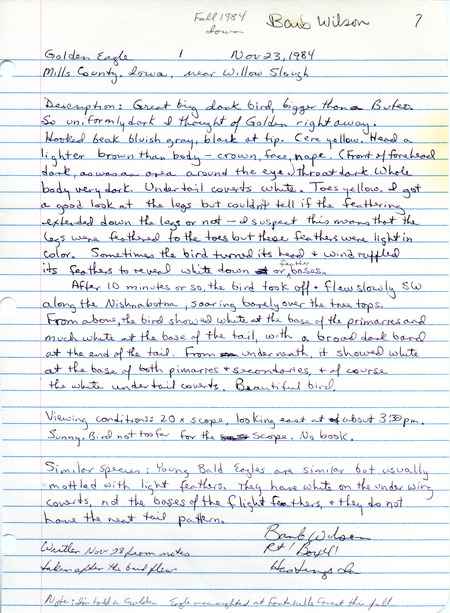 Fall 1984
Iowa
Barb Wilson
?
Golden Eagle 1 Nov 23, 1984
Mills County, Iowa, near Willow Slough
Description: Great big dark bird, bigger than a Buteo.
So uniformly dark I thought of Golden right away.
Hooked beak bluish gray, black at tip. Cere yellow. Head a
lighter brown than body - crown, face, nape. (Front of forehead
dark, as was an area around the eye.) Throat dark. Whole
body very dark. Undertail coverts white. Toes yellow. I got
a good look at the legs but couldn't tell if the feathering
extended down the legs or not - I suspect this means that the
legs were feathered to the toes but these feathers were light in
color. Sometimes the bird turned its head & wind ruffled
its feathers to reveal white down or feather bases.
After 10 minutes or so, the bird took off & flew slowly SW
along the Nishnabotna, soaring barely over the tree tops.
From above, the bird showed white at the base of the primaries and
much white at the base of the tail, with a broad dark band
at the end of the tail. From underneath, it showed white
at the base of both pimaries & secondaries, & of course
the white undertail coverts. Beautiful bird.
Viewing conditions: 20 x scope, looking east at about 3:30 pm.
Sunny. Bird not too far for the scope. No book.
Similar species: Young Bald Eagles are similar but usually
mottled with light feathers. They have white on the under wing
coverts, not the bases of the flight feathers, & they do not
have the neat tail pattern.
Barb Wilson
Written Nov 28 from notes Rt 1 Box 41
taken after the bird flew Hastings Ia
Note: I'm told a Golden Eagle was sighted at Fontenelle Forest this fall